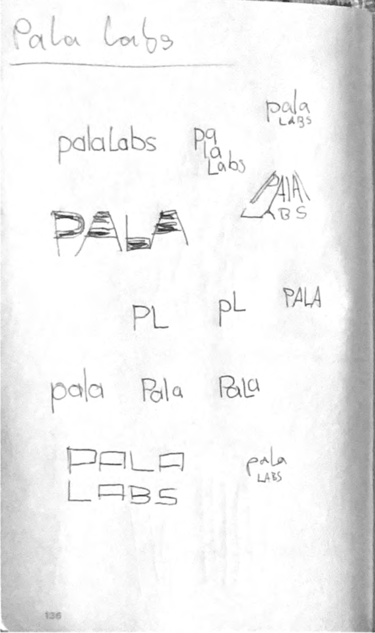 Pala Labs
pala
LABS
palaLabs
pa
la
Labs
PAlA
LABS
PALA
PL
pL
PALA
pala
Pala
PaLa
PALA
LABS
pala
LABS
136